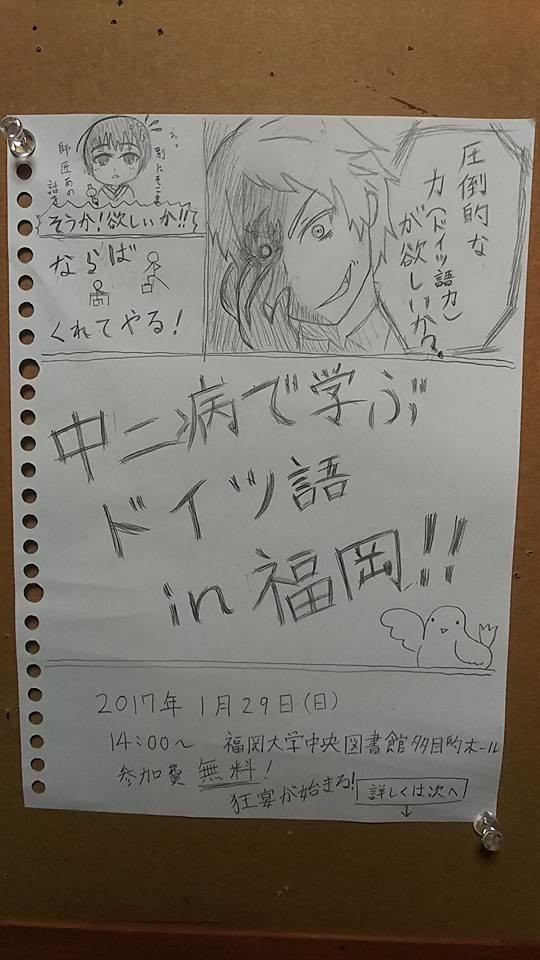 圧倒的な
力(ドイツ語力)
が欲しいか?
えっ
別にそこまで
師匠あの
話を
そうか!欲しいか!!
ならば
くれてやる!
中二病で学ぶ
ドイツ語
in 福岡!!
2017年 1月29日(日)
14:00〜 福岡大学中央図書館多目的ホール
参加費 無料!
狂宴が始まる!
詳しくは次へ
↓